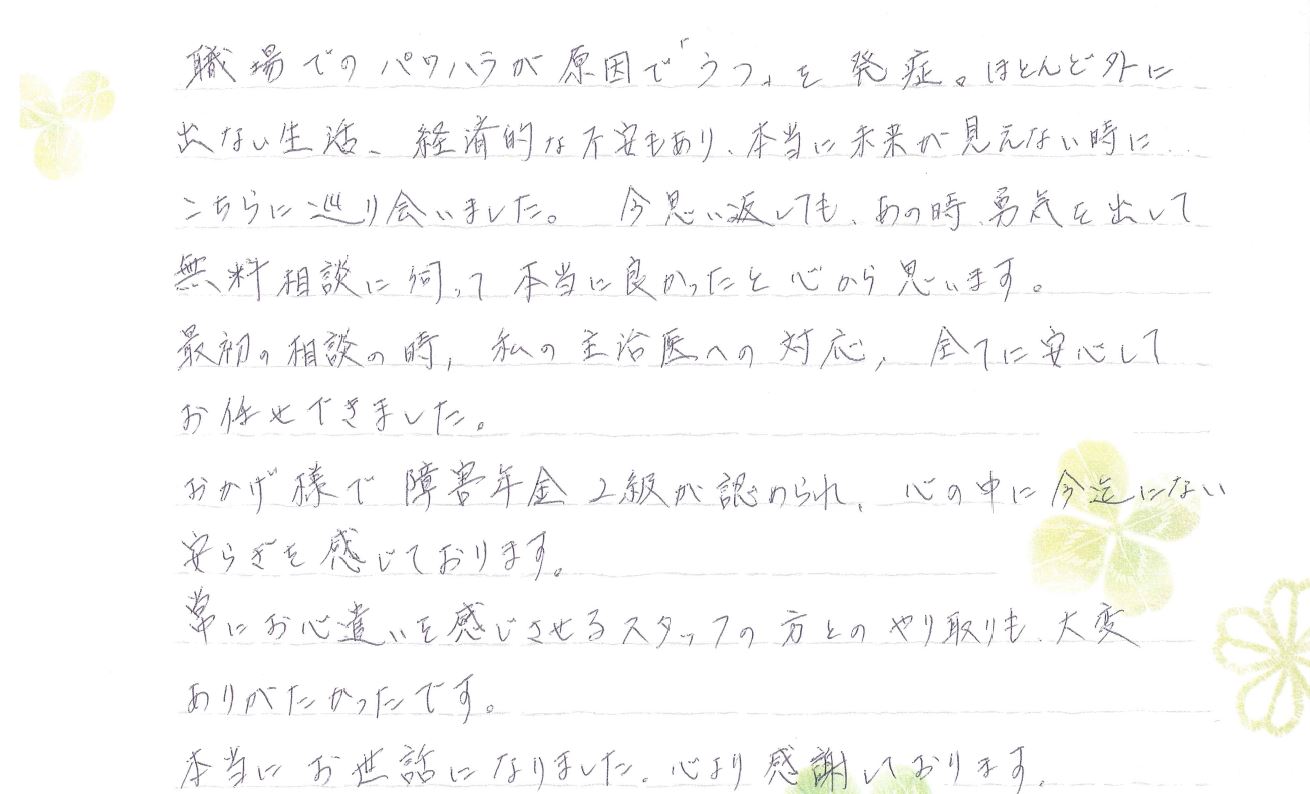 職場でのパワハラが原因で「うつ」を発症。ほとんど外に
出ない生活、経済的な不安もあり、本当に未来が見えない時に
こちらに巡り会いました。 今思い返しても、あの時、勇気を出して
無料相談に伺って本当に良かったと心から思います。
最初の相談の時、私の主治医への対応、全てに安心して
お任せできました。
おかげ様で障害年金2級が認められ、心の中に今迄にない
安らぎを感じております。
常にお心遣いを感じさせるスタッフの方とのやり取りも、大変
ありがたかったです。
本当にお世話になりました。心より感謝しております。